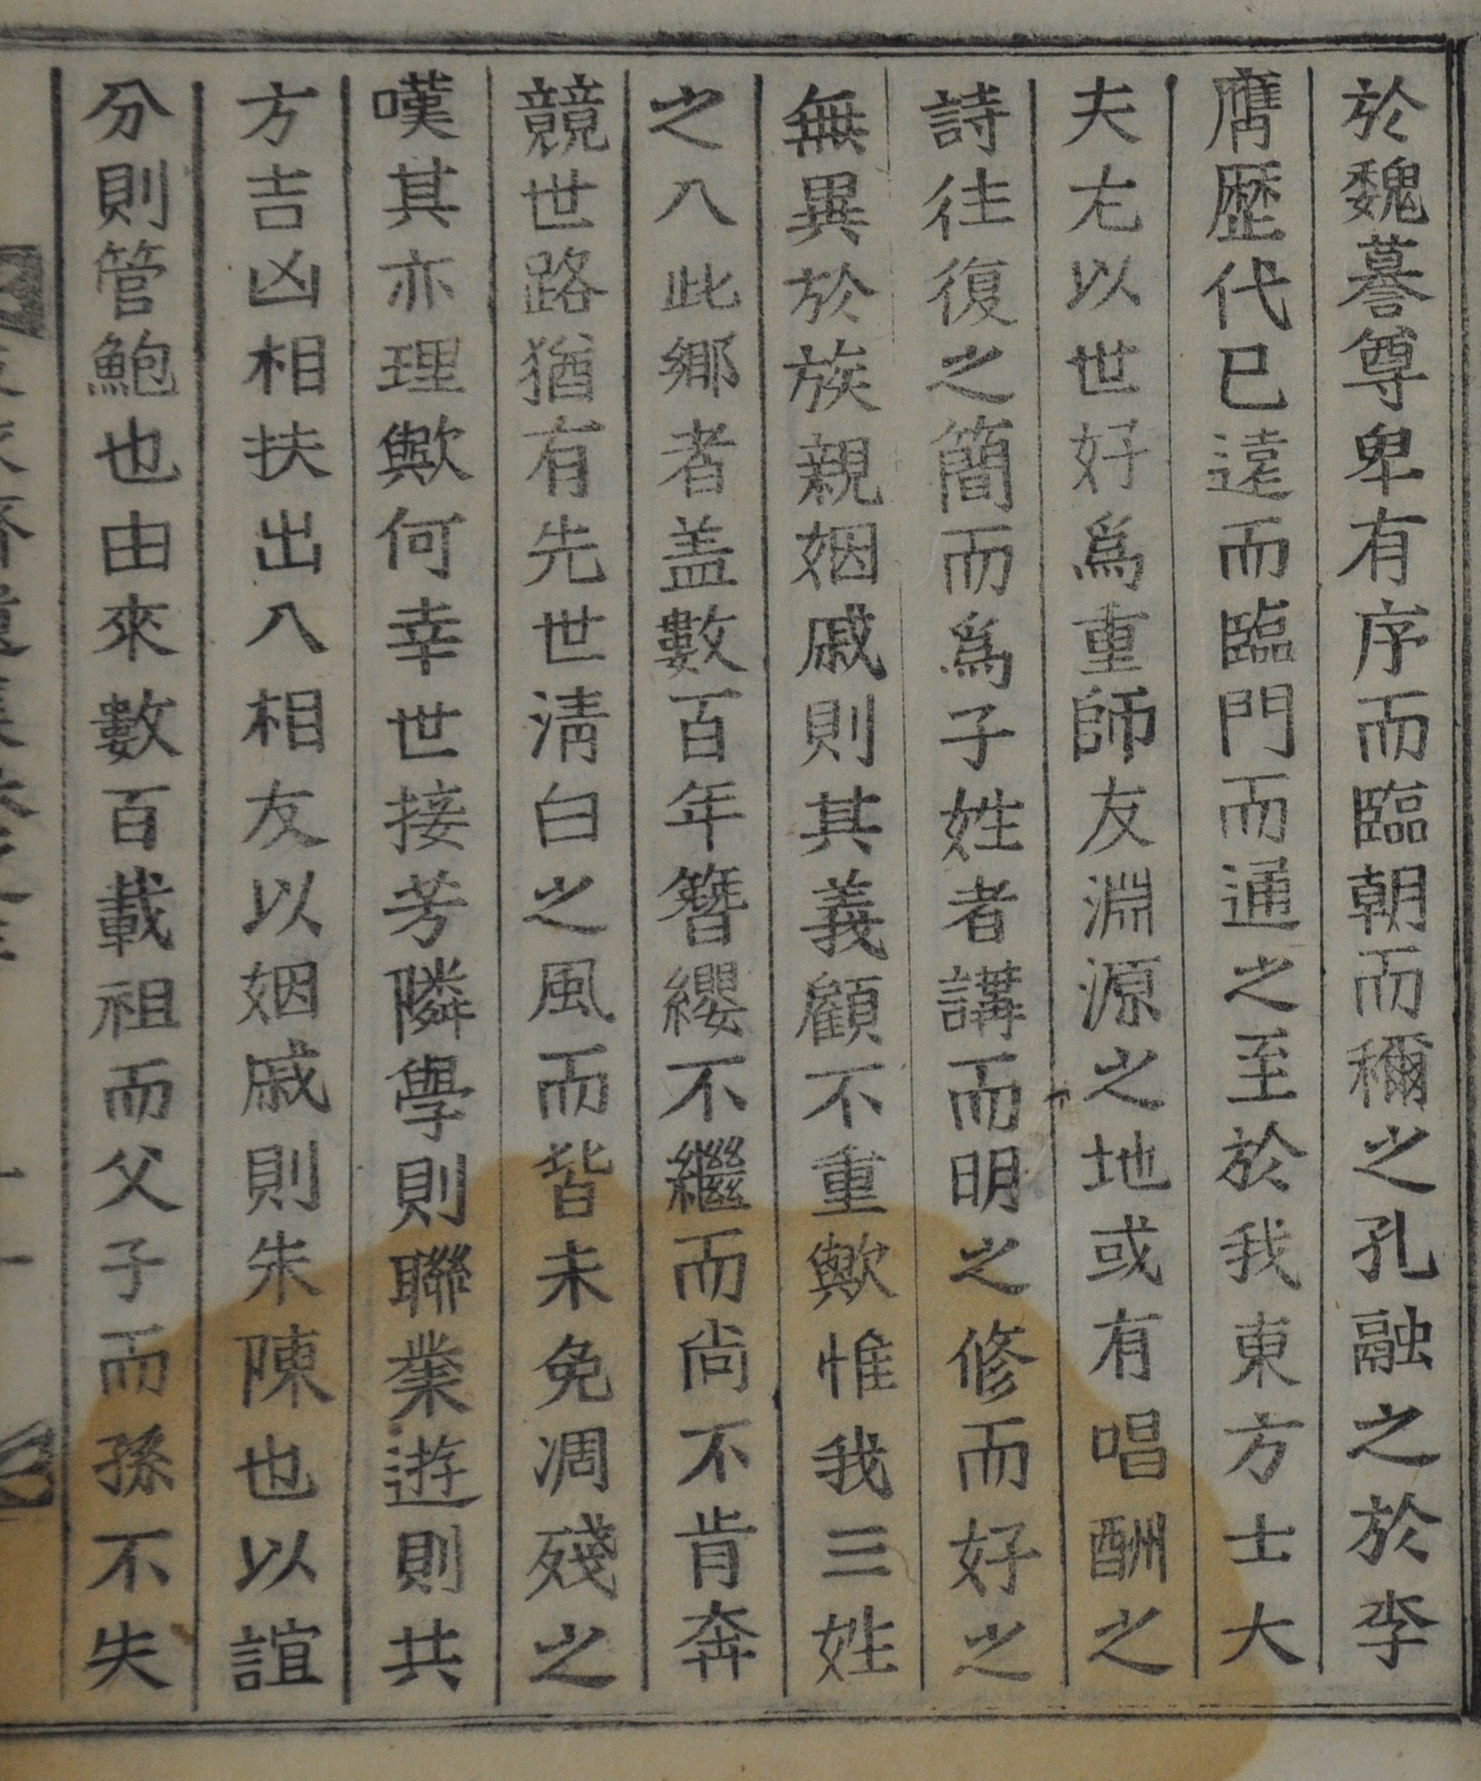 於魏蓦尊卑有序而臨朝而穪之孔融之於李
膺歷代已遠而臨門而通之至於我東方士大
夫尤以世好爲重師友淵源之地或有唱酬之
詩往復之簡而爲子姓者講而明之修而好之
無異於族親姻戚則其義顧不重歟惟我三姓
之入此鄉者盖數百年簪纓不繼而尙不肯奔
競世路猶有先世淸白之風而皆未免凋殘之
嘆其亦理歟何幸世接芳隣學則聯業遊則共
方吉凶相扶出入相友以姻戚則朱陳也以誼
分則管鮑也由來數百載祖而父子而孫不失